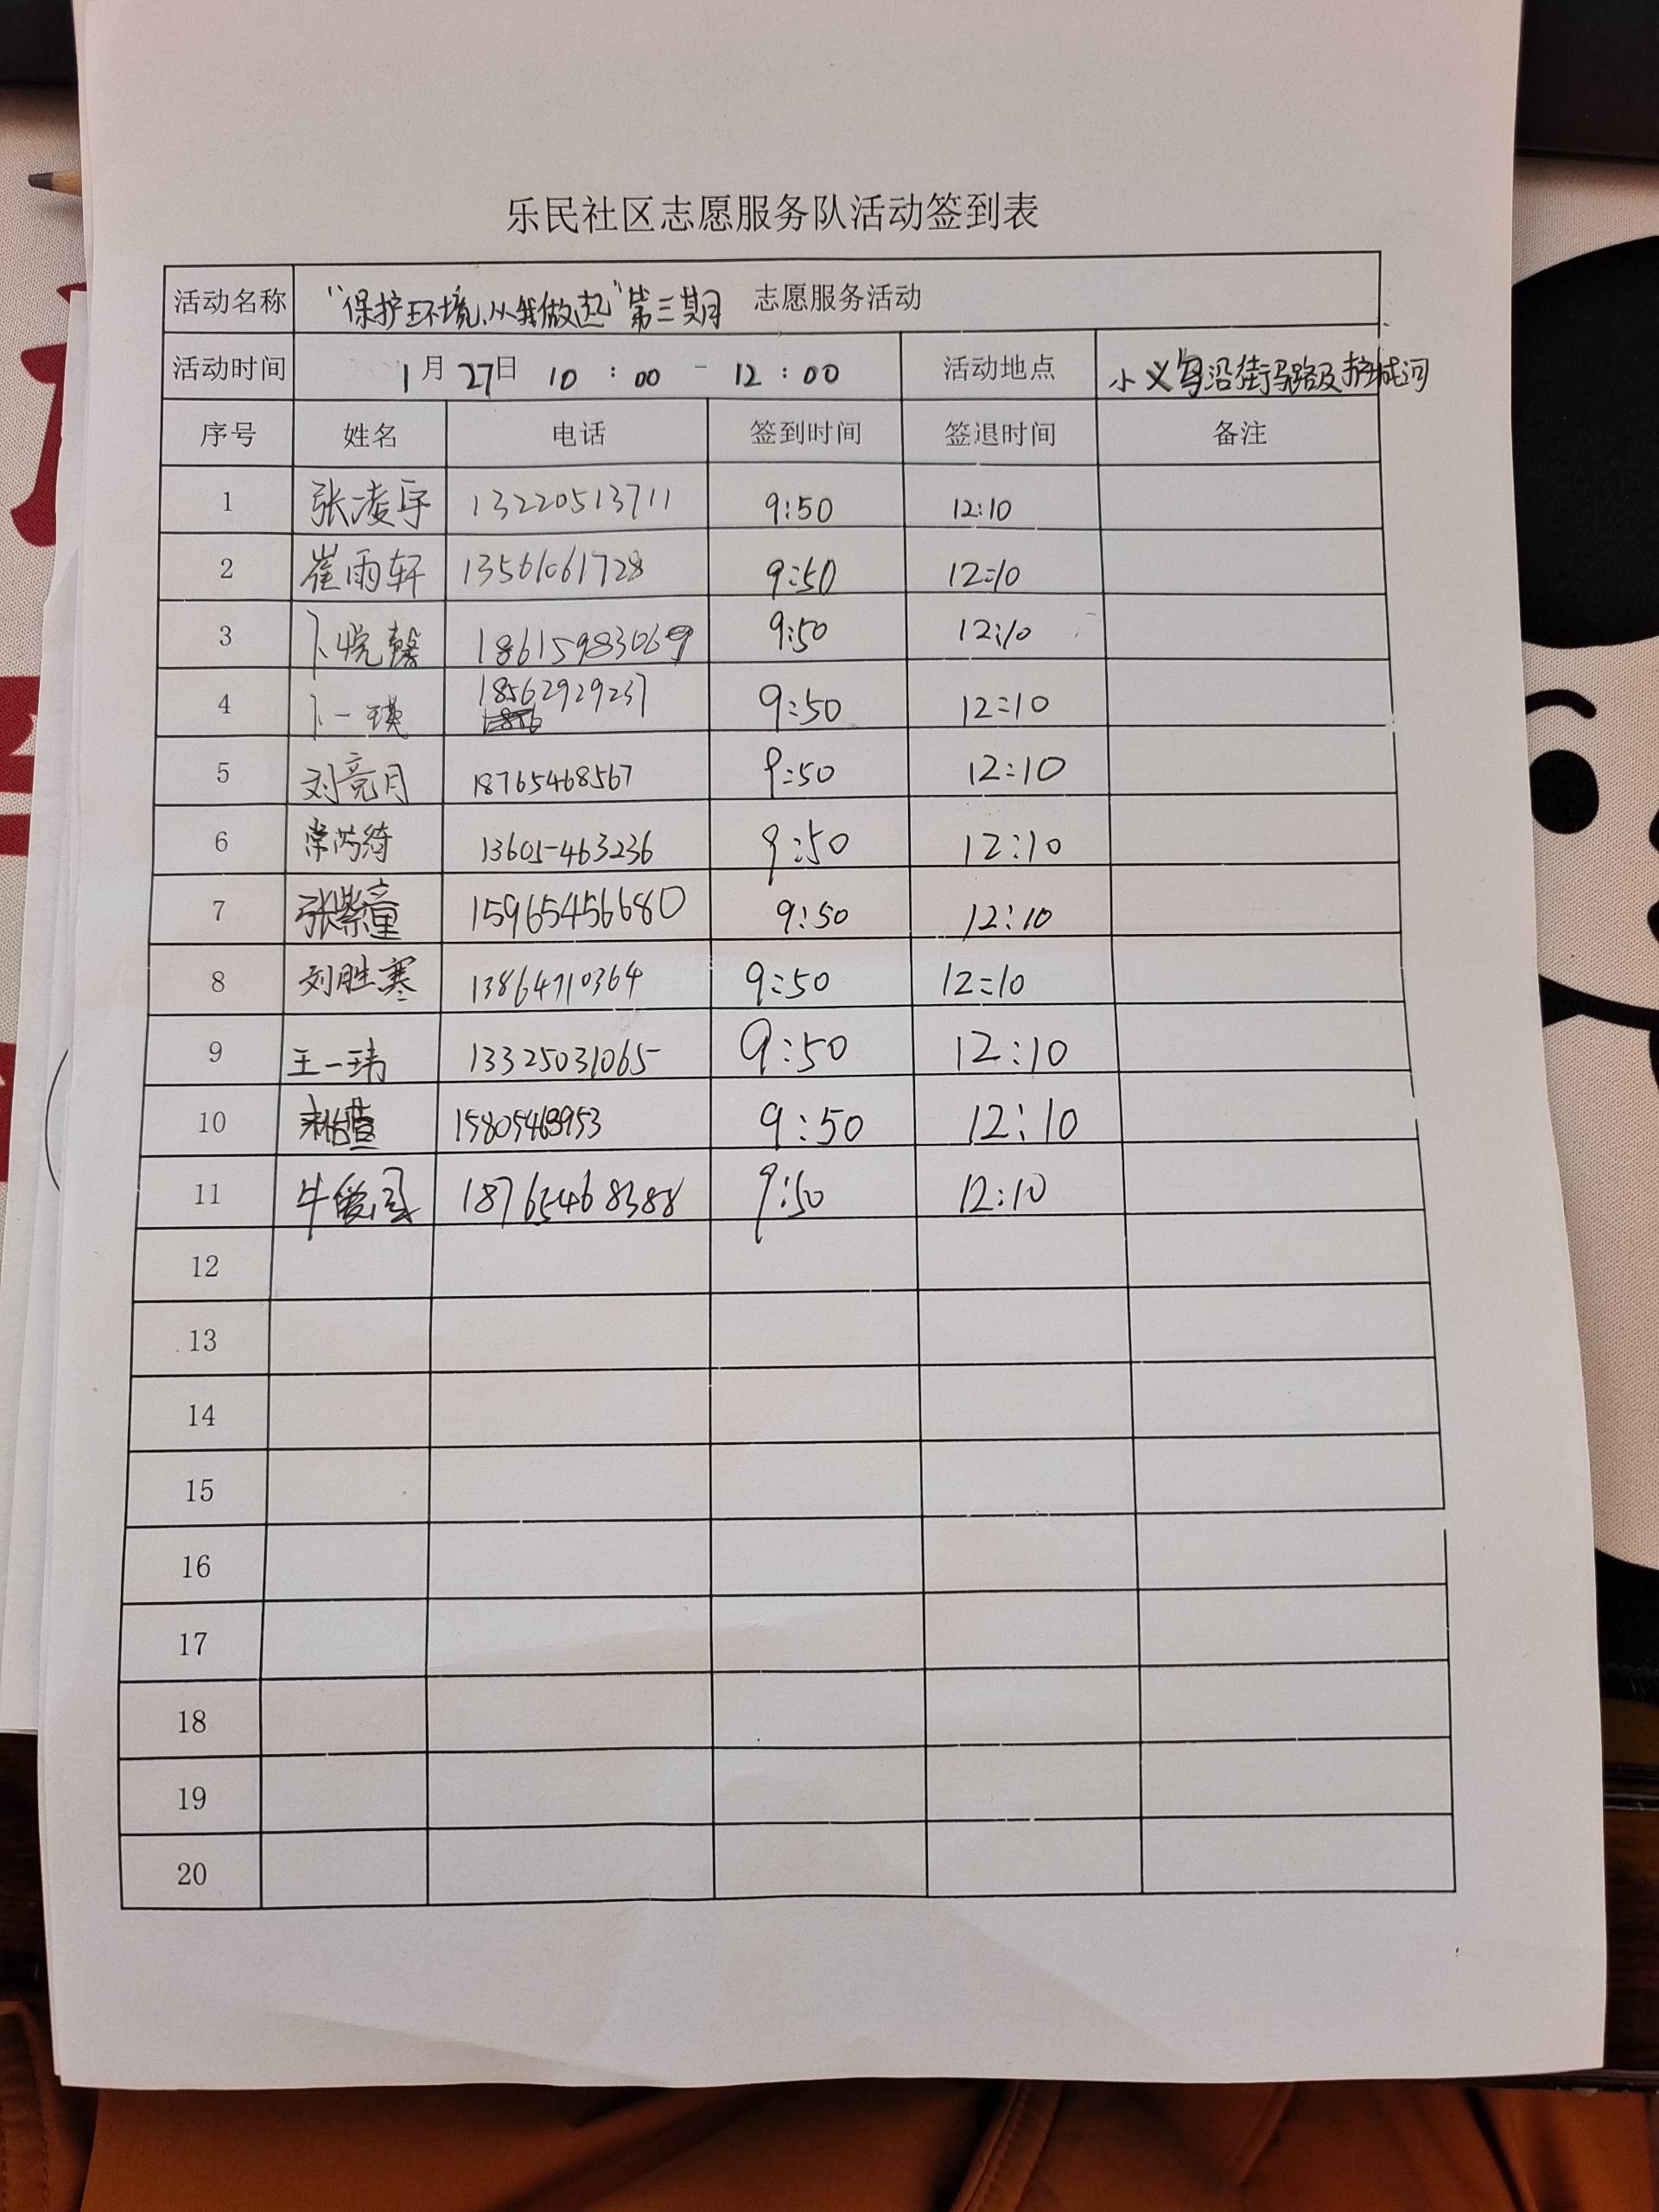 乐民社区志愿服务队活动签到表
活动名称 "保护环境、从我做起"第三期 志愿服务活动
活动时间 1月27日 10:00-12:00 活动地点 小义乌沿街马路及护城河
序号 姓名 电话 签到时间 签退时间 备注
1 张凌宇 13220513711 9:50 12:10
2 崔雨轩 13561061728 9:50 12:10
3 卜悦馨 18615983069 9:50 12:10
4 卜一瑛 18562929237 9:50 12:10
5 刘亮月 18765468567 9:50 12:10
6 常芮绮 13605463236 9:50 12:10
7 张紫童 15965456680 9:50 12:10
8 刘胜寒 13864710364 9:50 12:10
9 王一玮 13325031065 9:50 12:10
10 9:50 12:10
11 牛爱国 18765468388 9:50 12:10
12
13
14
15
16
17
18
19
20